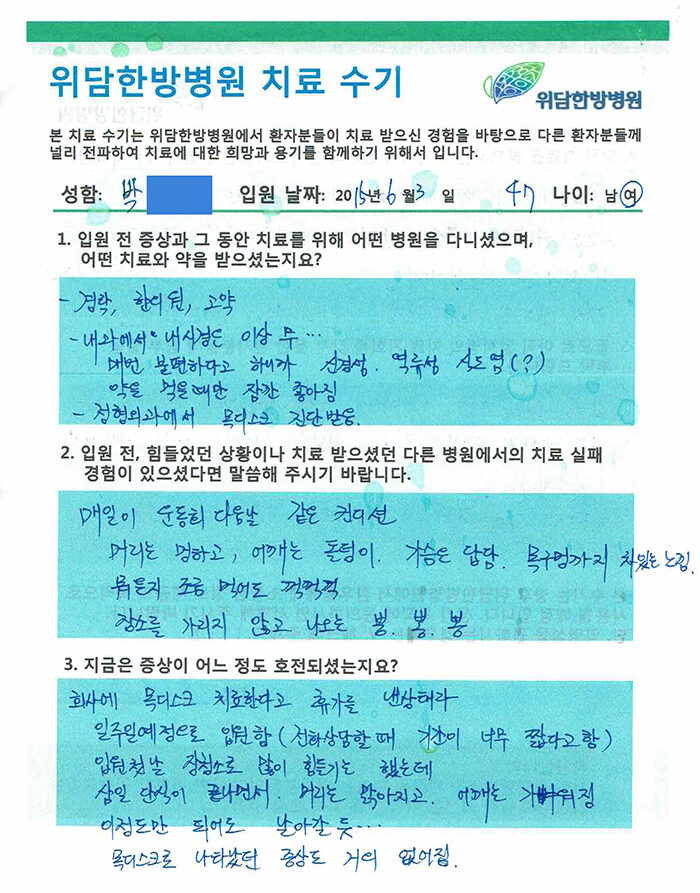 위담한방병원 치료 수기
위담한방병원
본 치료 수기는 위담한방병원에서 환자분들이 치료 받으신 경험을 바탕으로 다른 환자분들께
널리 전파하여 치료에 대한 희망과 용기를 함께하기 위해서 입니다.
성함: 박 입원 날짜: 2015년 6월 3일 47 나이: 남 여
1. 입원 전 증상과 그 동안 치료를 위해 어떤 병원을 다니셨으며,
어떤 치료와 약을 받으셨는지요?
- 경락, 한의원, 고약
- 내과에서 내시경은 이상 무...
매번 불편하다고 하니까 신경성. 역류성 식도염(?)
약을 먹을때만 잠깐 좋아짐
- 정형외과에서 목디스크 진단받음.
2. 입원 전, 힘들었던 상황이나 치료 받으셨던 다른 병원에서의 치료 실패
경험이 있으셨다면 말씀해 주시기 바랍니다.
매일이 운동회 다음날 같은 컨디션
머리는 멍하고, 어깨는 돌덩이. 가슴은 답답. 목구멍까지 차있는 느낌.
뭐든지 조금 먹어도 꺽꺽꺽
장소를 가리지 않고 나오는 뿡. 뿡. 뿡
3. 지금은 증상이 어느 정도 호전되셨는지요?
회사에 목디스크 치료한다고 휴가를 낸상태라
일주일예정으로 입원함 (전화상담할때 기간이 너무 짧다고함)
입원첫날 장청소로 많이 힘들기는 했는데
삼일 단식이 끝나면서. 머리는 맑아지고. 어깨는 가벼워짐
이정도만 되어도 날아갈 듯...
목디스크로 나타났던 증상도 거의 없어짐.